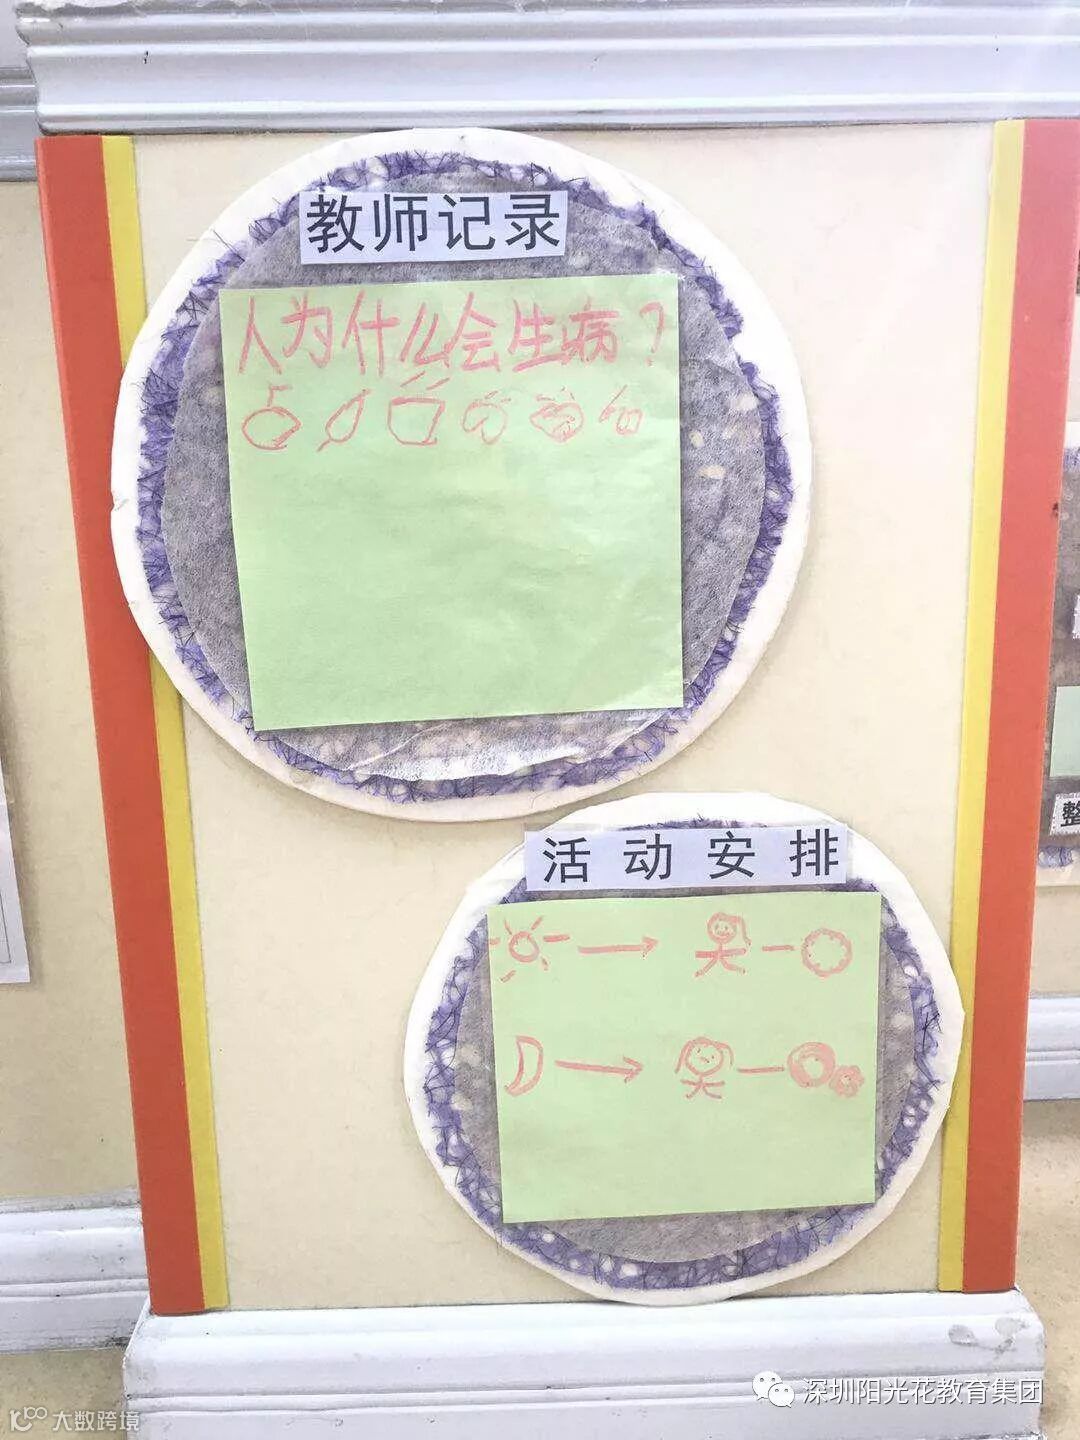 教师记录
人为什么会生病？
活动安排
整
深圳阳光花教育集团
大数跨境